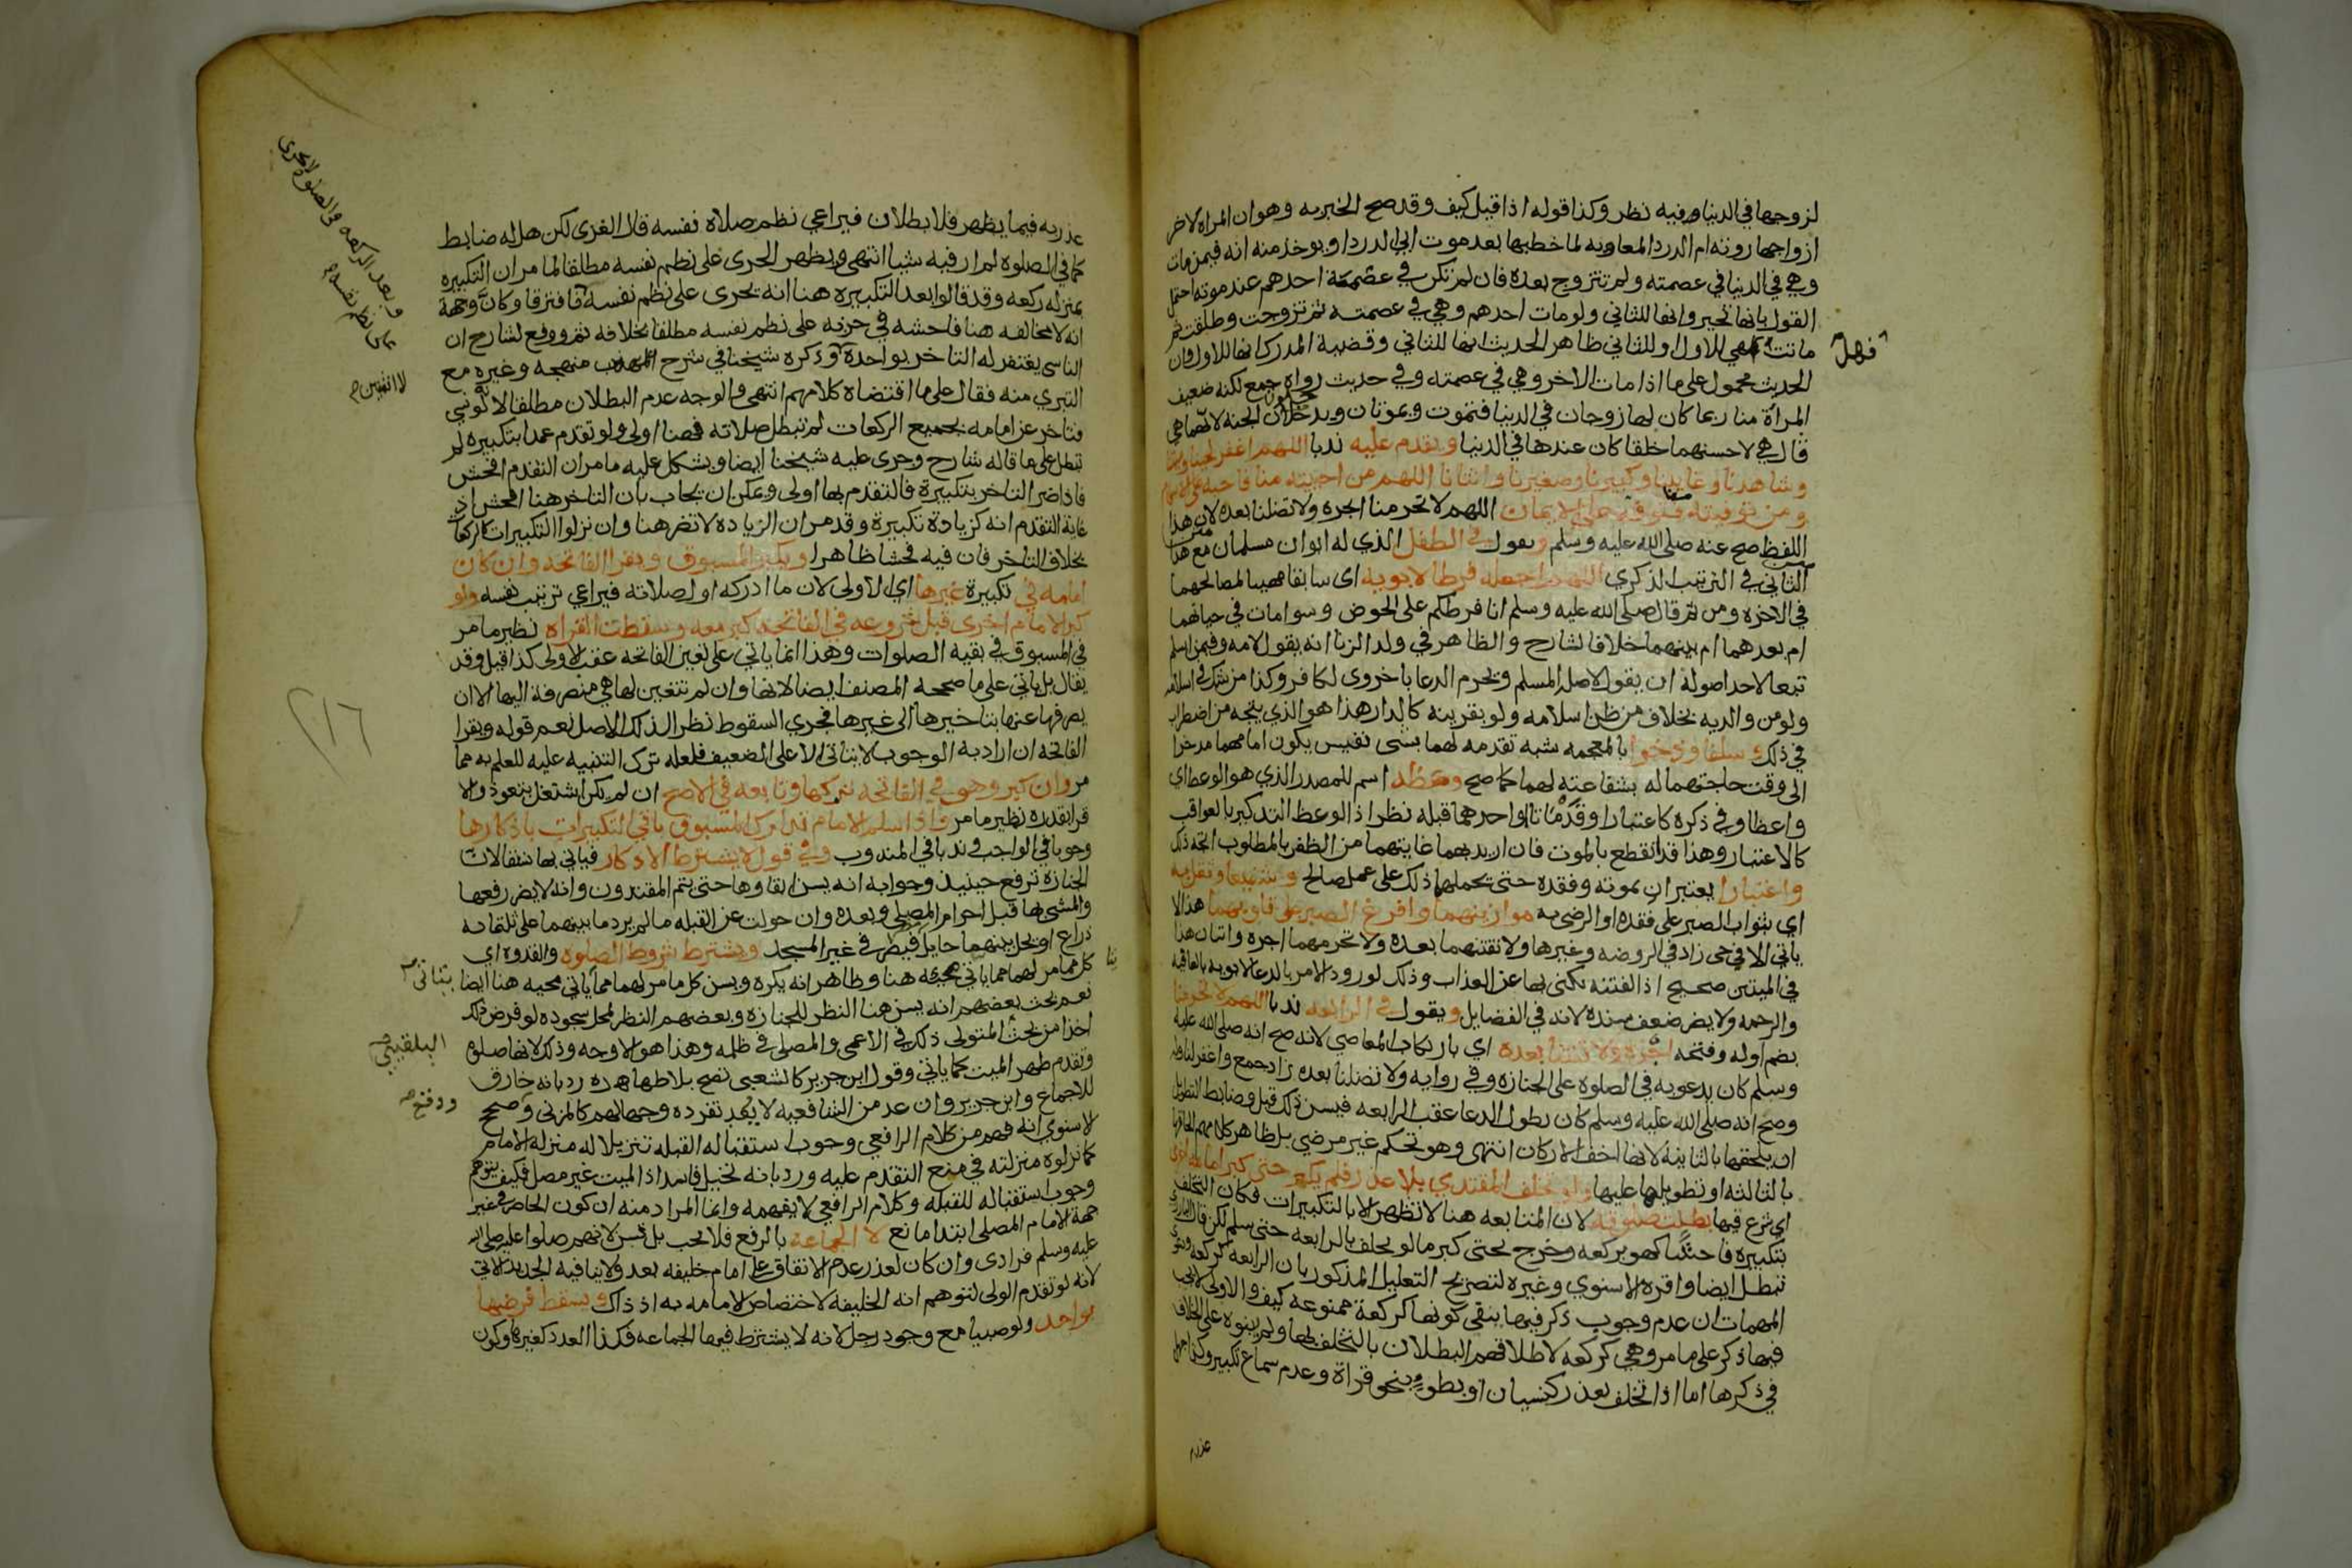 لزوجها في الدنيا وفيه نظر وكذا قوله اذا قيل كيف وقد صح الخبر به وهو ان المراة لاخر
ازواجها روته ام الدردا لمعاويه لما خطبها بعد موت ابي الدردا ويوخذ منه انه فيمن مات
وهي في الدنيا في عصمته ولم تتزوج بعده فان لم تكن في عصمة احدهم عند موته احتمل
القول بانها تخير وانها للثاني ولو مات احدهم وهي في عصمته ثم تزوجت وطلقت ثم
ماتت فهل هي للاول او للثاني ظاهر الحديث انها للثاني وقضية المدرك انها للاول وان
الحديث محمول على ما اذا مات الاخر وهي في عصمته وفي حديث رواه جمع لكنه ضعيف
المراة منا ربما كان لها زوجان في الدنيا فتموت ويموتان ويدخلان الجنه لايهما هي
قال هي لاحسنهما خلقا كان عندها في الدنيا ويقدم عليه ندبا اللهم اغفر لحينا وميتنا
وشاهدنا وغايبنا وكبيرنا وصغيرنا وانثانا اللهم من احييته منا فاحيه على الاسلام
ومن توفيته منا فتوفه على الايمان اللهم لا تحرمنا اجره ولا تضلنا بعده لان هذا
اللفظ صح عنه صلى الله عليه وسلم ويقول في الطفل الذي له ابوان مسلمان مع هذا
الثاني في الترتيب الذكري اللهم اجعله فرطا لابويه اي سابقا مهييا لمصالحهما
في الاخره ومن ثم قال صلى الله عليه وسلم انا فرطكم على الحوض وسوا مات في حياتهما
ام بعدهما ام بينهما خلافا لشارح والظاهر في ولد الزنا انه يقول لامه وفيمن اسلم
تبعا لاحد اصوله ان يقول لاصله المسلم ويحرم الدعا باخروي لكافر وكذا من شك في اسلامه
ولو من والديه بخلاف من ظن اسلامه ولو بقرينه كالدار هذا هو الذي يتجه من اضطراب
في ذلك وسلفا وذخرا بالمعجمه شبه تقدمه لهما بشي نفيس يكون امامهما مدخرا
الى وقت حاجتهما له بشفاعته لهما كما صح وعظة اسم للمصدر الذي هو الوعظ اي
واعظا وفي ذكره كاعتبارا وقد ماتا او احدهما قبله نظر اذ الوعظ التذكير بالعواقب
كالاعتبار وهذا قد انقطع بالموت فان اريد بهما غايتهما من الظفر بالمطلوب اتجه ذلك
واعتبارا يعتبران بموته وفقده حتى يحملهما ذلك على عمل صالح وشفيعا وثقل به
اي بثواب الصبر على فقده او الرضى به موازينهما وافرغ الصبر على قلوبهما هذا لا
ياتي الا في حي زاد في الروضه وغيرها ولا تفتنهما بعده ولا تحرمهما اجره واتيان هذا
في الميتين صحيح اذ الفتنه يكنى بها عن العذاب وذلك لورود الامر بالدعا لابويه بالعافيه
والرحمه ولا يضر ضعف سنده لانه في الفضايل ويقول في الرابعه ندبا اللهم لا تحرمنا
بضم اوله وفتحه اجره ولا تفتنا بعده اي بارتكاب المعاصي لانه صح انه صلى الله عليه
وسلم كان يدعو به في الصلوة على الجنازه وفي روايه ولا تضلنا بعده زاد جمع واغفر لنا وله
وصح انه صلى الله عليه وسلم كان يطول الدعا عقب الرابعه فيسن ذلك قيل وضابط التطويل
ان يلحقها بالثانيه لانها اخف الاركان انتهى وهو تحكم غير مرضي بل ظاهر كلامهم الحاقها
بالثالثه او تطويلها عليها ولو تخلف المقتدي بلا عذر فلم يكبر حتى كبر امامه اخرى
اي شرع فيها بطلت صلوته لان المتابعه هنا لا تظهر الا بالتكبيرات فكان التخلف
بتكبيره فاحشا كهو بركعه وخرج بحتى كبر ما لو تخلف بالرابعه حتى سلم لكن قال البارزي
تبطل ايضا واقره الاسنوي وغيره لتصريح التعليل المذكور بان الرابعه كركعه ودعوى
المهمات ان عدم وجوب ذكر فيها ينفي كونها كركعة ممنوعه كيف والاولى لا يجب
فيها ذكر على ما مر وهي كركعه لاطلاقهم البطلان بالتخلف بها ولم يبنوه على الخلاف
في ذكرها اما اذا تخلف بعذر كنسيان او بطو بنحو قراة وعدم سماع تكبير وكذا جهل
عذر
فهل
عذر به فيما يظهر فلا بطلان فيراعي نظم صلاة نفسه قال الغزي لكن هل له ضابط
كما في الصلوة لم ار فيه شيا انتهى ويظهر الجري على نظم نفسه مطلقا لما مر ان التكبيره
بمنزله ركعه وقد قالوا بعد التكبيره هنا انه يجري على نظم نفسه فافترقا وكان وجهه
انه لا مخالفه هنا فاحشه في جريه على نظم نفسه مطلقا بخلافه ثم ووقع لشارح ان
الناسي يغتفر له التاخر بواحدة وذكره شيخنا في شرح منهجه وغيره مع
التبري منه فقال على ما اقتضاه كلامهم انتهى والوجه عدم البطلان مطلقا لانه لو نسي
فتاخر عن امامه بجميع الركعات لم تبطل صلاته فهنا اولى ولو تقدم عمدا بتكبيره لم
تبطل على ما قاله شارح وجرى عليه شيخنا ايضا ويشكل عليه ما مر ان التقدم افحش
فاذا ضر التاخر بتكبيرة فالتقدم بها اولى ويمكن ان يجاب بان التاخر هنا افحش اذ
غاية التقدم انه كزيادة تكبيرة وقد مر ان الزياده لا تضر هنا وان نزلوا التكبيرات كالركعات
بخلاف التاخر فان فيه فحشا ظاهرا ويكبر المسبوق ويقرا الفاتحه وان كان
امامه في تكبيرة غيرها اي الاولى لان ما ادركه اول صلاته فيراعي ترتيب نفسه ولو
كبر الامام اخرى قبل شروعه في الفاتحه كبر معه وسقطت القراه نظير ما مر
في المسبوق في بقيه الصلوات وهذا انما ياتي على تعين الفاتحه عقب الاولى كذا قيل وقد
يقال بل ياتي على ما صححه المصنف ايضا لانها وان لم تتعين لها هي منصرفة اليها الا ان
يصرفها عنها بتاخيرها الى غيرها فجرى السقوط نظرا لذلك الاصل نعم قوله ويقرا
الفاتحه ان اراد به الوجوب لا يتاتى الا على الضعيف فلعله ترك التنبيه عليه للعلم به مما
مر وان كبر وهو في الفاتحه تركها وتابعه في الاصح ان لم يكن اشتغل بتعوذ والا
قرا بقدره نظير ما مر واذا سلم الامام تدارك المسبوق باقي التكبيرات باذكارها
وجوبا في الواجب وندبا في المندوب وفي قول لا يشترط الاذكار فياتي بها نسقا لان
الجنازة ترفع حينيذ وجوابه انه يسن ابقاوها حتى يتم المقتدون وانه لا يضر رفعها
والمشي بها قبل احرام المصلي وبعده وان حولت عن القبله ما لم يزد ما بينهما على ثلثمايه
ذراع او يحل بينهما حايل في غير المسجد ويشترط شروط الصلوه والقدوه اي
كل ما مر لهما مما ياتي مجيه هنا وظاهر انه يكره ويسن كل ما مر لهما مما ياتي مجيه هنا ايضا
نعم بحث بعضهم انه يسن هنا النظر للجنازه وبعضهم النظر لمحل سجوده لو فرض ذلك
اخذا من بحث المتولي ذلك في الاعمى والمصلي في ظلمه وهذا هو الاوجه وذلك لانها صلوة
وتقدم طهر الميت كما ياتي وقول ابن جرير كالشعبي تصح بلا طهارة رد بانه خارق
للاجماع وابن جرير وان عد من الشافعيه لا يعد تفرده وجها لهم كالمزني وصحح
لاسنوي انه فهم من كلام الرافعي وجوب استقباله القبله تنزيلا له منزله الامام
كما نزلوه منزلته في منع التقدم عليه ورد بانه تخيل فاسد اذ الميت غير مصل فكيف يتوهم
وجوب استقباله للقبله وكلام الرافعي لا يفهمه وانما المراد منه ان كون الحاضر في غير
جهة الامام المصلي ابتدا مانع لا الجماعة بالرفع فلا تجب بل تسن لانهم صلوا عليه صلى الله
عليه وسلم فرادى وان كان لعذر عدم الاتفاق على امام خليفه بعد ولا ينافيه الجديد الاتي
لانه لو تقدم الولى لتوهم انه الخليفه لاختصاص الامامه به اذ ذاك ويسقط فرضها
بواحد ولو صبيا مع وجود رجل لانه لا يشترط فيها الجماعه فكذا العدد كغيرها وكون
وبعد الركعه في الصلوة لا يجري
على نظم نفسه
لا اثنتين
٢١٦
يتاتى
البلقيني
ودفع